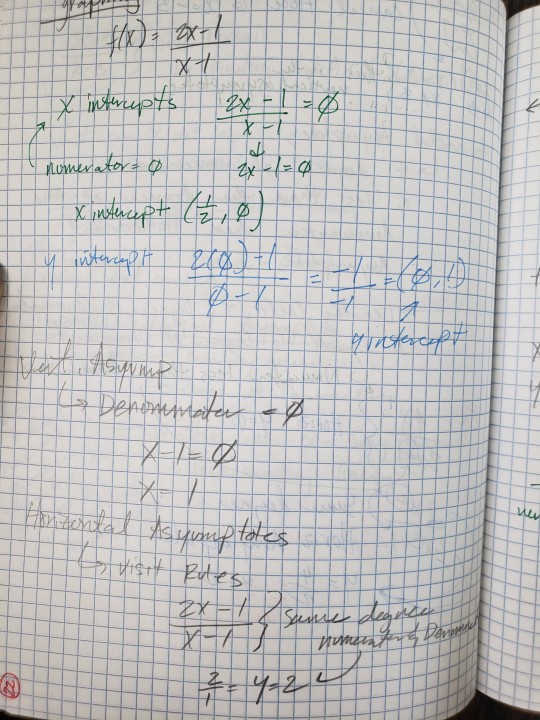 graphing
f(x) = 2x-1 / x-1
x intercepts 2x-1 / x-1 = Ø
numerator = Ø 2x-1=Ø
x intercept (1/2, Ø)
y intercept 2(Ø)-1 / Ø-1 = -1 / -1 = (Ø,1)
y intercept
Vert. Asymp
↳ Denominater = Ø
x-1=Ø
x=1
Horizontal Asymptotes
↳ visit Rules
2x-1 / x-1 } same degree
numerator & Denomin
2/1 = y=2